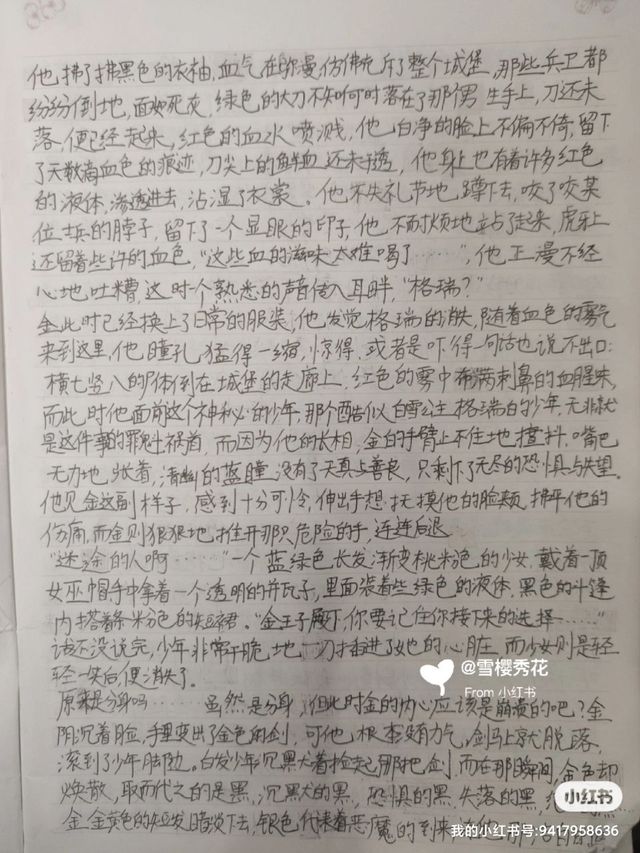 他拂了拂黑色的衣袖,血气在弥漫仿佛充斥了整个城堡,那些兵卫都
纷纷倒地,面如死灰,绿色的大刀不知何时落在了那男生手上,刀还未
落,便已经起来,红色的血水喷溅,他白净的脸上不偏不倚,留下
了无数滴血色的痕迹,刀尖上的鲜血还未干透,他身上也有着许多红色
的液体,渗透进去,沾湿了衣裳。他不失礼节地蹲下去,咬了咬某
位士兵的脖子,留下了一个显眼的印子,他不耐烦地站了起来,虎牙上
还留着些许的血色,"这些血的滋味太难喝了……",他正漫不经
心地吐糟,这时一个熟悉的声音传入耳畔,"格瑞?"
金此时已经换上了日常的服装,他发觉格瑞的消失,随着血色的雾气
来到这里,他瞳孔猛得一缩,惊得,或者是吓得一句话也说不出口:
横七竖八的尸体倒在城堡的走廊上,红色的雾中布满刺鼻的血腥味,
而此时他面前这个神秘的少年,那个酷似白雪公主格瑞的少年,无非就
是这件事的罪魁祸首,而因为他的长相,金的手臂上不住地撞抖,嘴巴
无力地张着,清幽的蓝瞳没有了天真与善良,只剩下了无尽的恐惧与失望。
他见金这副样子,感到十分可怜,伸出手想抚摸他的脸颊,拂平他的
伤痛,而金则狠狠地推开那只危险的手,连连后退
"迷途的人啊……"一个蓝绿色长发渐变桃粉色的少女,戴着一顶
女巫帽手中拿着一个透明的并瓦子,里面装着些绿色的液体,黑色的斗篷
内搭着条粉色的短裙。"金王子殿下,你要记住你接下来的选择……"
话还没说完,少年非常干脆地一刀插进了她的心脏,而少女则是轻
轻一笑后便消失了。
原来是分身吗……虽然是分身,但此时金的内心应该是崩溃的吧?金
阴沉着脸,手里变出了金色的剑,可他根本没有力气,剑马上就脱落,
滚到了少年脚边。白发少年沉默着捡起那把剑,而在那瞬间,金色却
焕散,取而代之的是黑,沉默的黑,恐惧的黑,失落的黑,
金金黄色的短发暗淡下去,银色代表着恶魔的到来
@雪樱秀花
From 小红书
小红书
我的小红书号:9417958636